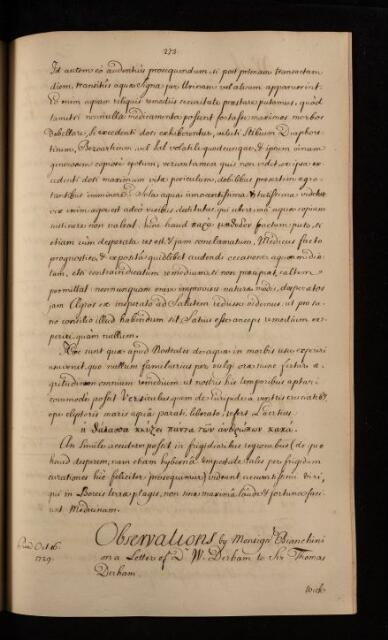 273.
Id autem eò audentius prosequendum, si post primam transactam
diem, transitûs aquæ signa per Urinam vel alvum apparuerint.
Eo enim aquam reliquis remediis securitate præstare putamus, quòd
tametsi nonnulla medicamenta possent fortasse maximos morbos
debellare, si excedenti dosi exhiberentur, veluti Stibium Diaphore-
ticum, Bezoarticum, vel Sal volatile quodcunque, & ipsum vinum
generosum copiosè epotum; veruntamen quis non videt, ex ipsa ex-
cedenti dosi maximum vitæ periculum, debilibus præsertim ægro-
tantibus imminere? Sola aqua innocentissima, & tutissima videtur
vix enim aliquis est adeò viribus destitutus, qui
sustinere non valeat. haud factum puto, si
etiam cùm desperata res est, & jam conclamatum, Medicus facto
prognostico, & exposito quidlibet audendi occasione, aquam
tam, etsi contraindicatum remedium si non præcipiat, saltem
permittat nemnunquam enim improvisis naturæ modis, desperatos
jam Ægros ex insperato ad Salutem reduci videmus, ut pro sa-
no consilio illud habendum sit, Satius esse anceps remedium ex-
periri, quàm nullum.
Hæc sunt quæ apud Nostrates de aqua in morbis usu experiri
ut nullum familiarius per vulgi ora nunc feratur æ-
gritudinum omnium remedium, ut nostris his temporibus aptari
commodè posset Versiculus quem de Euripide
ope sacerdotis maris aquâ parati, liberato, refert Laertius
ἡ θάλασσα κλύζει πάντα τῶν ἀνθρώπων κακά.
An Simile accidere posset in frigidioribus regionibus (de quo
haud desperem, nam etiam hyberniâ tempestate tales per frigidum
curationes hîc feliciter prosequimur) videant sapientissimi Viri,
qui in Boreis terræ plagis, non sine maxima laude, & fortuna faci-
unt Medicinam.
Read Oct. 16.
1729.
Observations by Monsignr. Bianchini
on a Letter of Dr. W. Derham to Sir Thomas
Derham.
with